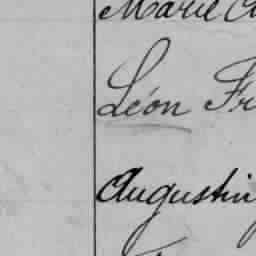 Marie
Léon Fr
Augustin